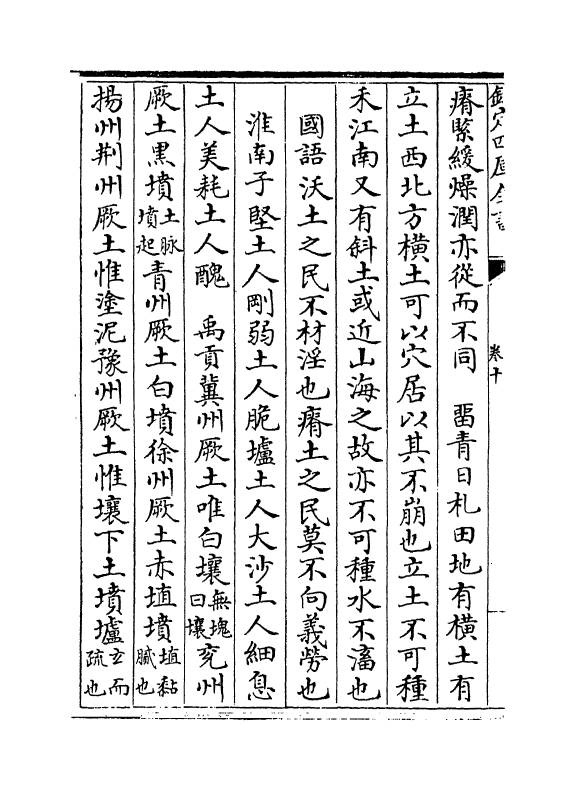 欽定四庫全書
卷十
瘠緊緩燥潤亦從而不同　畱青日札田地有橫土有
立土西北方橫土可以穴居以其不崩也立土不可種
禾江南又有斜土或近山海之故亦不可種水不滀也
國語沃土之民不材淫也瘠土之民莫不向義勞也
淮南子堅土人剛弱土人脆壚土人大沙土人細息
土人美耗土人醜　禹貢冀州厥土唯白壤無塊曰壤兖州
厥土黑墳土脉墳起青州厥土白墳徐州厥土赤埴墳埴黏膩也
揚州荆州厥土惟塗泥豫州厥土惟壤下土墳壚玄而疏也